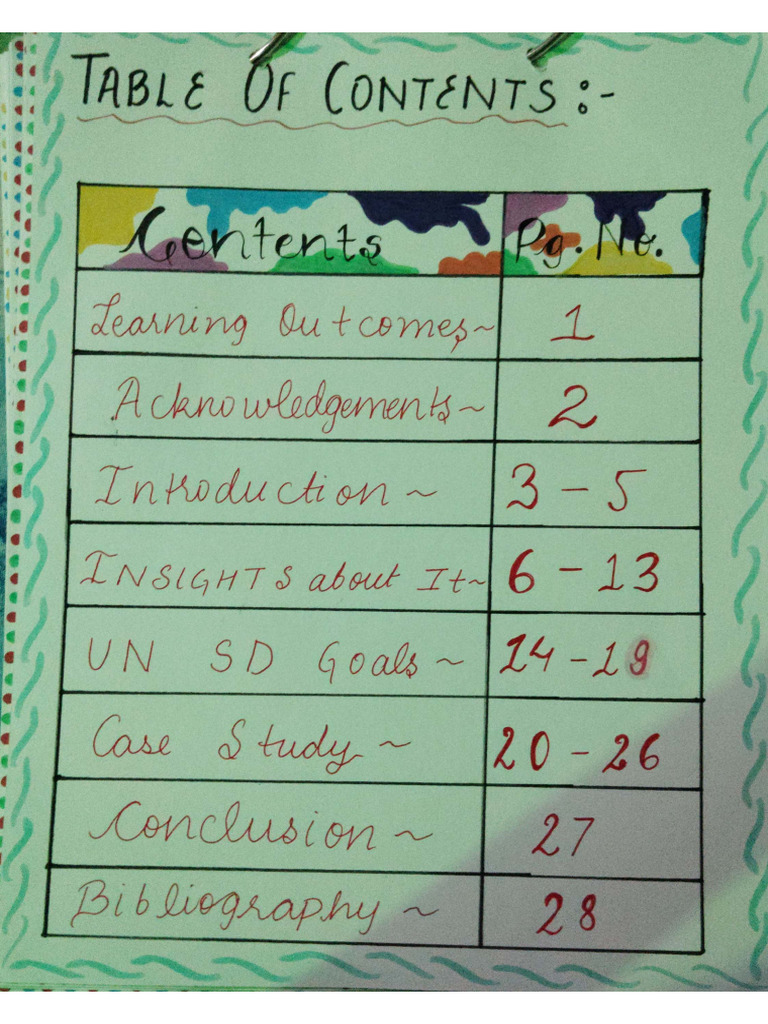 TABLE OF CONTENTS :-
Contents Pg. No.
Learning Outcomes~ 1
Acknowledgements~ 2
Introduction ~ 3 - 5
INSIGHTS about It~ 6 - 13
UN SD Goals ~ 14 - 19
Case Study ~ 20 - 26
Conclusion ~ 27
Bibliography ~ 28